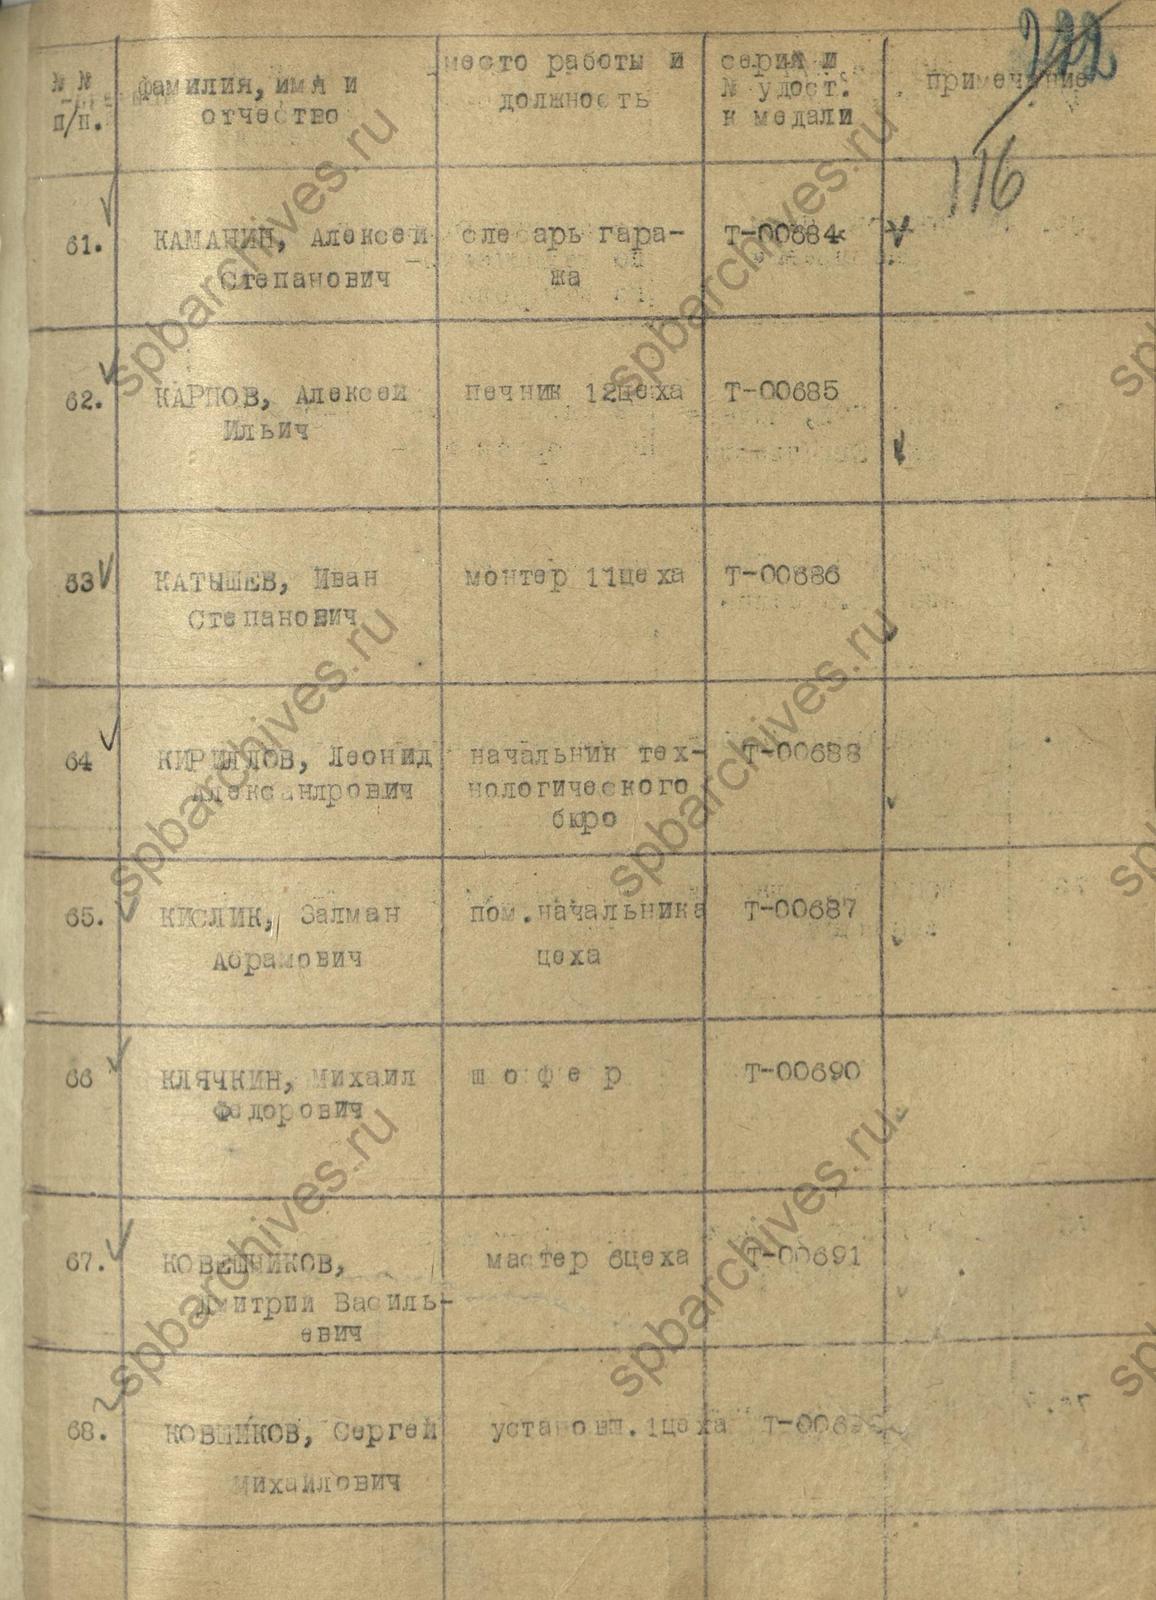 № №
п/п.
фамилия, имя и
отчество
место работы и
должность
серия и
№ удост.
к медали
примечание
116
61.
КАМАНИН, Алексей
Степанович
слесарь гара-
жа
Т-00684
62.
КАРПОВ, Алексей
Ильич
печник 12цеха
Т-00685
63
КАТЫШЕВ, Иван
Степанович
монтер 11цеха
Т-00686
64
КИРИЛЛОВ, Леонид
Александрович
начальник тех-
нологического
бюро
Т-00688
65.
КИСЛИК, Залман
Абрамович
пом.начальника
цеха
Т-00687
66
КЛЯЧКИН, Михаил
Федорович
шофер
Т-00690
67.
КОВЕШНИКОВ,
Дмитрий Василь-
евич
мастер 6цеха
Т-00691
68.
КОВШИКОВ, Сергей
Михайлович
установщ. 1цеха
spbarchives.ru
spbarchives.ru
spbarchives.ru
spbarchives.ru
spbarchives.ru
spbarchives.ru